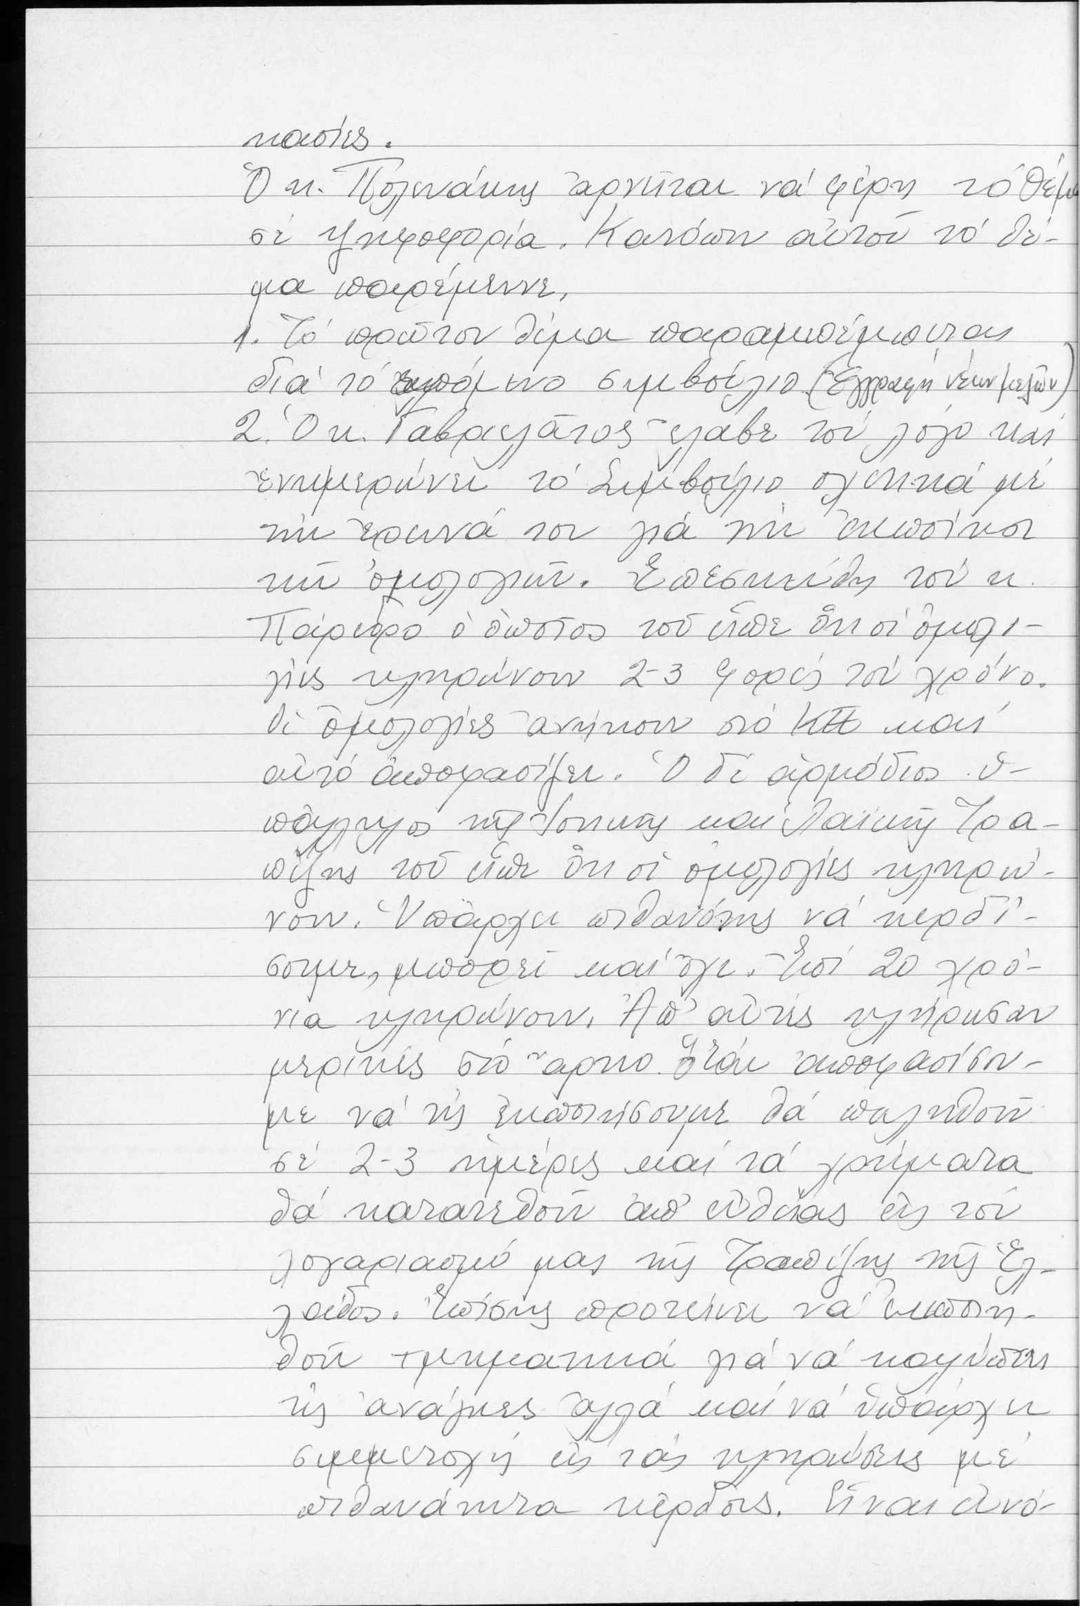 κασίες.
Ὁ κ. Πολενάκης ἀρνεῖται νά φέρη τό θέμα
σέ ψηφοφορία. Κατόπιν αὐτοῦ τό θέ-
μα παρέμεινε.
1. Τό πρῶτον θέμα παραμπέμπεται
διά τό ἑπόμενο συμβούλιο. (Ἐγγραφή νέων μελῶν)
2. Ὁ κ. Γαβριελᾶτος ἔλαβε τόν λόγο καί
ἐνημερώνει τό Συμβούλιο σχετικά μέ
τήν ἔρευνά του γιά τήν ἐκποίηση
τῶν ὁμολογιῶν. Ἐπεσκέφθη τόν κ.
ὁ ὁποῖος τοῦ εἶπε ὅτι οἱ ὁμολο-
γίες κληρώνουν 2-3 φορές τόν χρόνο.
Οἱ ὁμολογίες ἀνήκουν στό καί
αὐτό ἀποφασίζει. Ὁ δέ ἁρμόδιος ὑ-
πάλληλος τῆς Ἰονικῆς καί Λαϊκῆς Τρα-
πέζης τοῦ εἶπε ὅτι οἱ ὁμολογίες κληρώ-
νουν. Ὑπάρχει πιθανότης νά κερδί-
σουμε, μπορεῖ καί ὄχι. Ἐπί 20 χρό-
νια κληρώνουν. Ἀπ' αὐτές κλήρωσαν
μερικές στό Ὅταν ἀποφασίσου-
με νά τίς ἐκποιήσουμε θά πωληθοῦν
σέ 2-3 ἡμέρες καί τά χρήματα
θά κατατεθοῦν ἀπ' εὐθείας εἰς τόν
λογαριασμό μας τῆς Τραπέζης τῆς Ἑλ-
λάδος. Ἐπίσης προτείνει νά ἐκποιη-
θοῦν τμηματικά γιά νά καλύπτει
τίς ἀνάγκες ἀλλά καί νά ὑπάρχει
συμμετοχή εἰς τάς κληρώσεις μέ
πιθανότητα κέρδους. Εἶναι εὐνό-